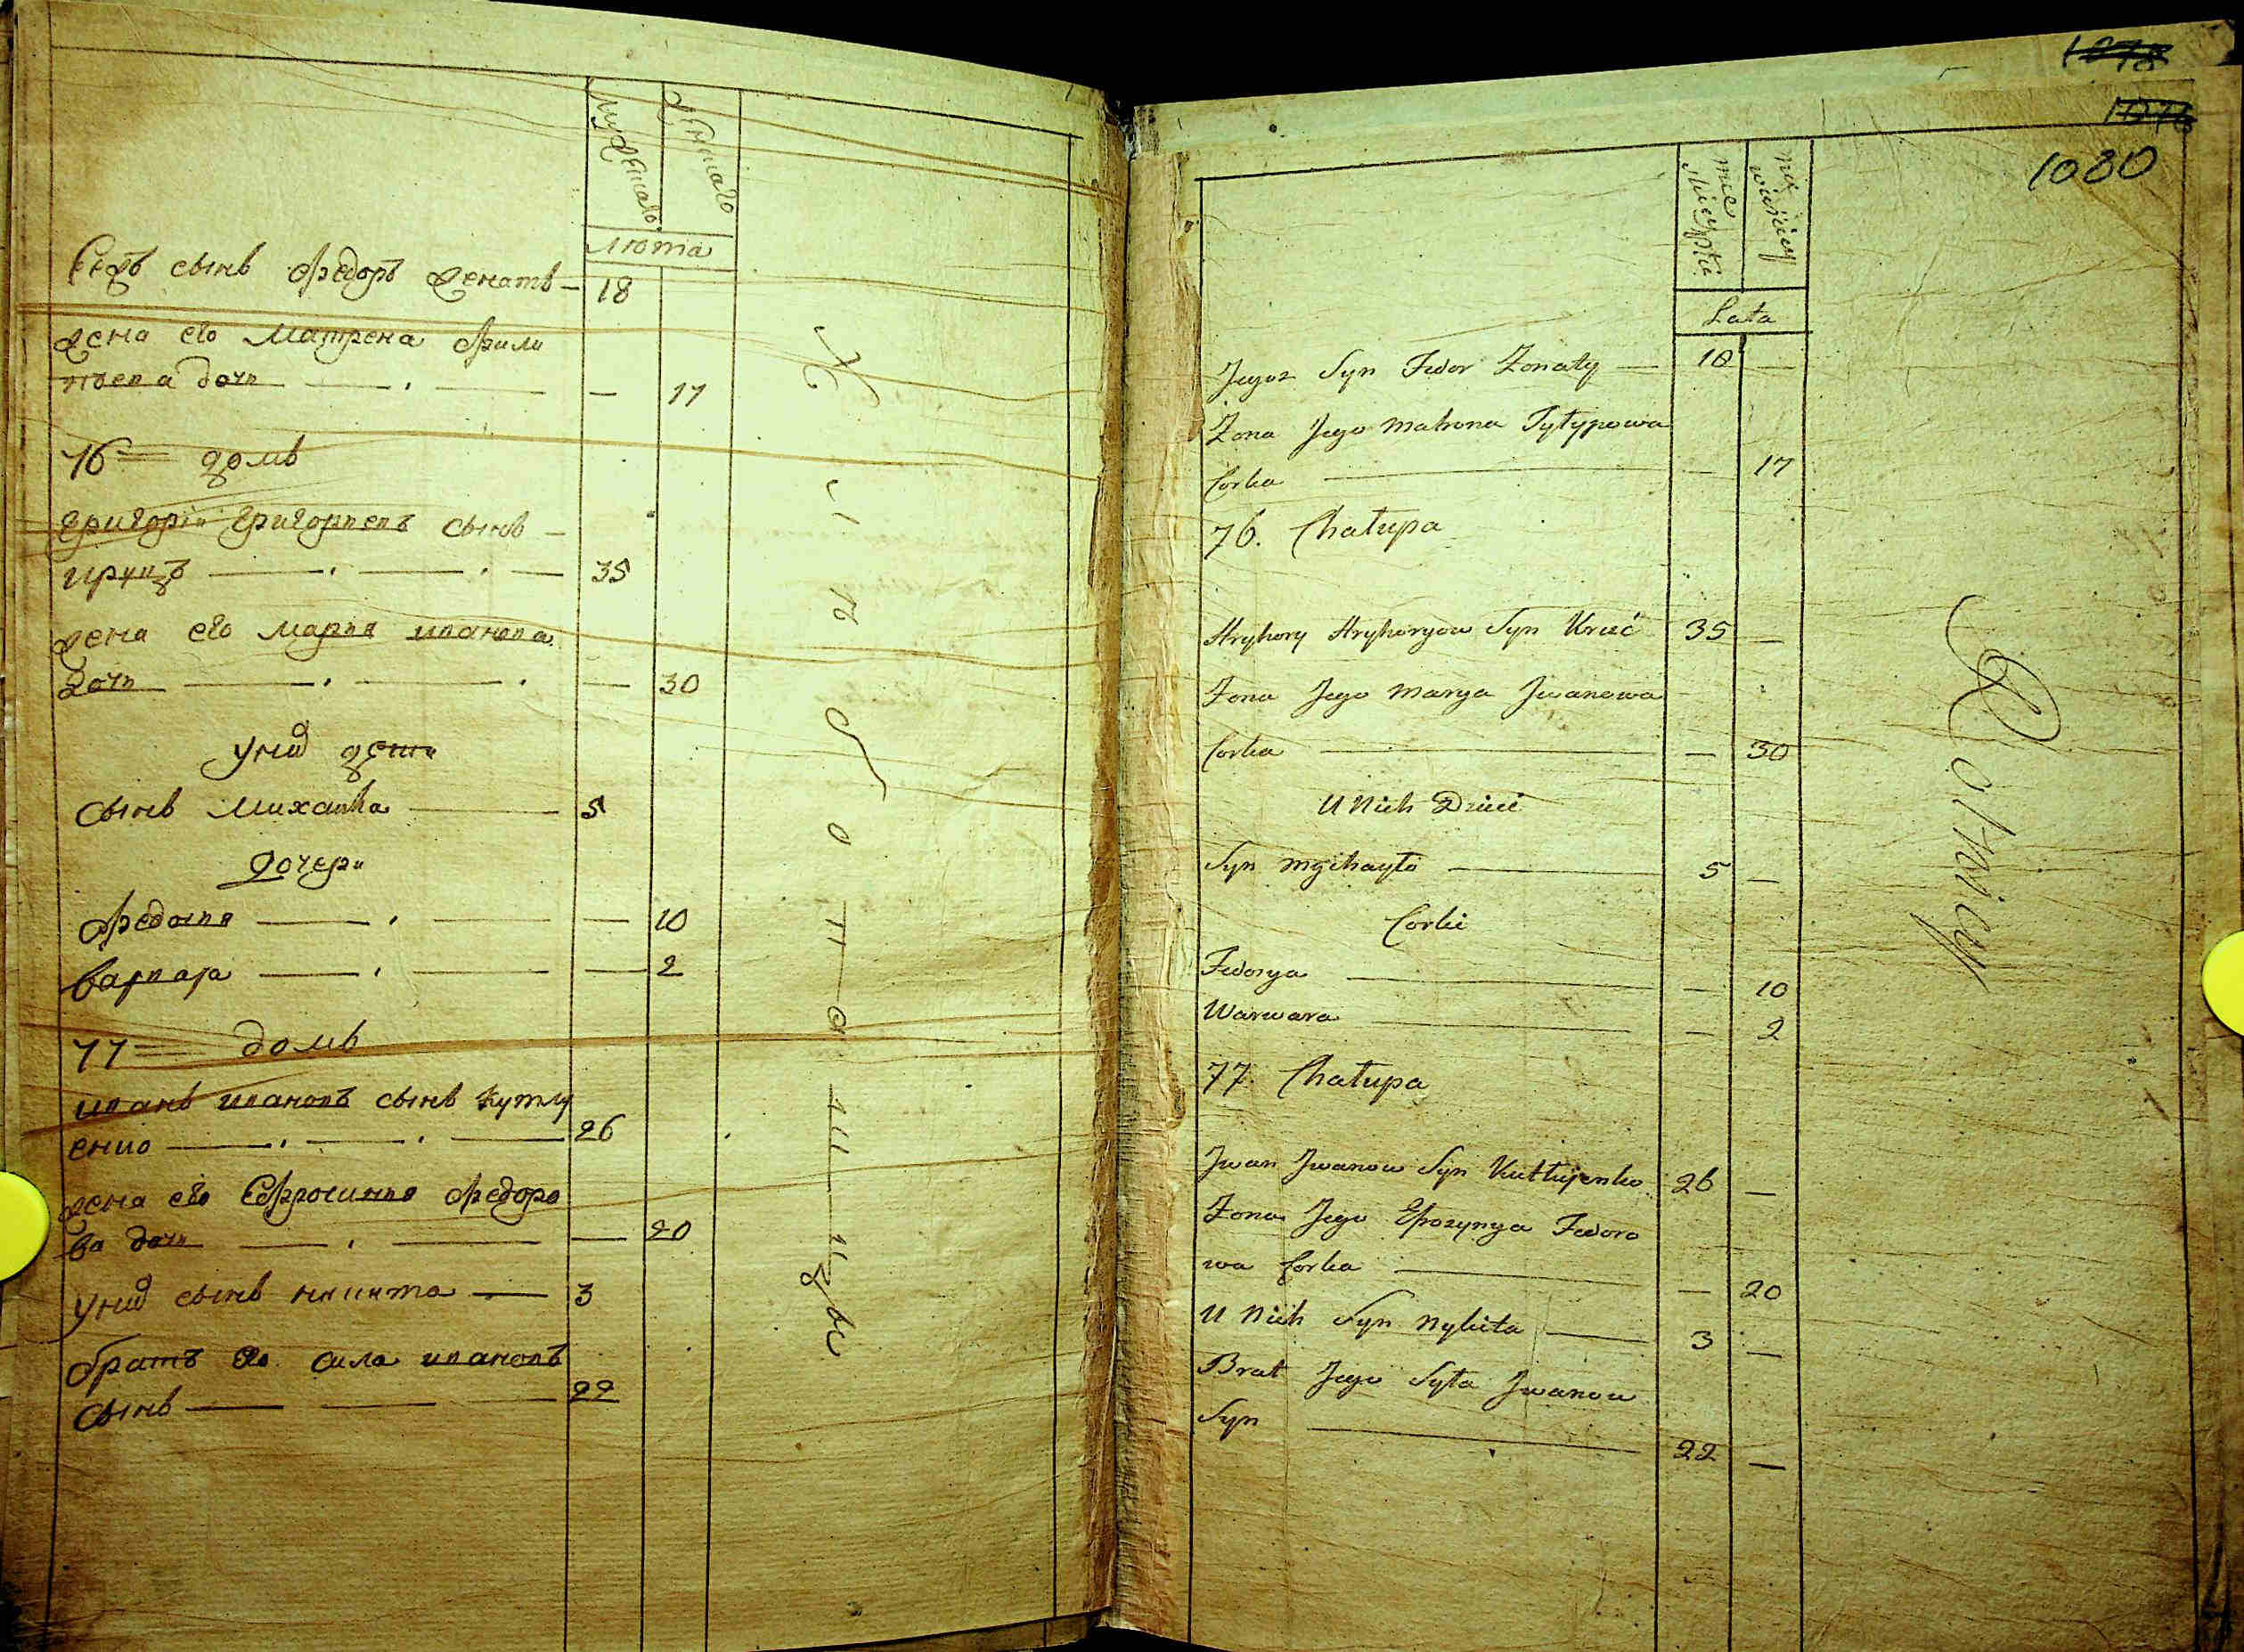 мужеска
женскаго
люта
Егожъ сынъ Федоръ женатъ — 18
жена его Матрена Фили
пова дочь — — 17
76 = домъ
Григорій Григорьевъ сынъ —
Круцъ — — 35
жена его Марья Иванова
дочь — — 30
у них дети
сынъ Михаила — 5
дочери
Федосья — — 10
Варвара — — 2
77 = домъ
Иванъ Ивановъ сынъ Кутлу
енко — — 26
жена его Ефросинья Федоро
ва дочь — — 20
у них сынъ Никита — 3
братъ его Сила Ивановъ
сынъ — — 22
Хлѣбопашцы
1080
mę
na
Lata
Jegoz Syn Fedor Zonaty — 18 —
Zona Jego Matrona Pylypowa
Corka — — 17
76. Chałupa
Hryhory Hryhoryow Syn Kruć 35 —
Zona Jego Marya Jwanowa
Corka — — 30
U Nich Dzieci
Syn Mychayło — 5 —
Corki
Fedosya — — 10
Warwara — — 2
77. Chałupa
Jwan Jwanow Syn Kutłujenko 26 —
Zona Jego Eprozynya Fedoro
wa Corka — — 20
U Nich Syn Nykita — 3 —
Brat Jego Syła Jwanow
Syn — 22 —
Rolnicy